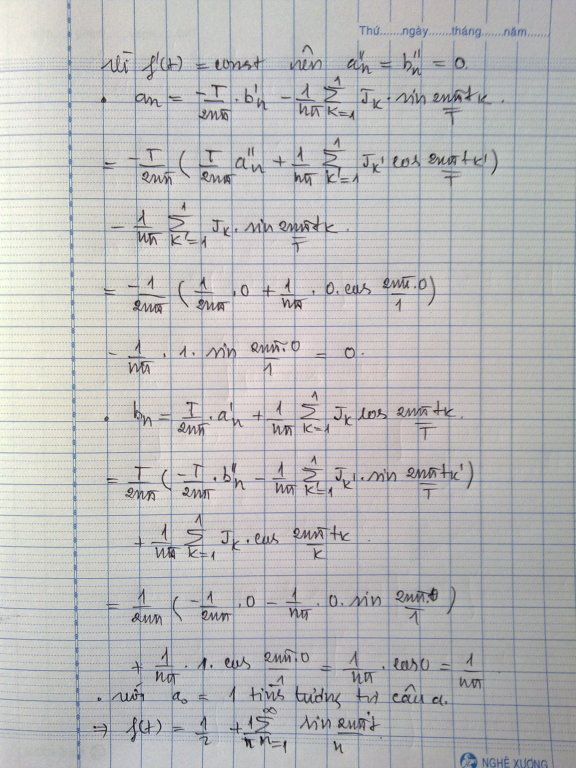 Thứ.......ngày.......tháng.......năm.......
Vì f'(t) = const nên a''n = b''n = 0.
• an = -T/2nπ . b'n - 1/nπ 1∑k=1 Jk . sin 2nπtk/T .
= -T/2nπ ( T/2nπ a''n + 1/nπ 1∑k'=1 Jk' cos 2nπtk'/T )
- 1/nπ 1∑k'=1 Jk . sin 2nπtk/T .
= -1/2nπ ( 1/2nπ . 0 + 1/nπ . 0. cos 2nπ.0/1 )
- 1/nπ . 1. sin 2nπ.0/1 = 0.
• bn = T/2nπ . a'n + 1/nπ 1∑k=1 Jk cos 2nπtk/T .
= T/2nπ ( -T/2nπ . b''n - 1/nπ 1∑k'=1 Jk' . sin 2nπtk'/T )
+ 1/nπ 1∑k=1 Jk . cos 2nπtk/k .
= 1/2nπ ( -1/2nπ . 0 - 1/nπ . 0. sin 2nπ.0/1 )
+ 1/nπ . 1. cos 2nπ.0/1 = 1/nπ . cos0 = 1/nπ
. với a0 = 1 tính tương tự câu a.
⇒ f(t) = 1/2 + 1/π ∞∑n=1 sin 2nπt/n
NGHỆ XƯƠNG